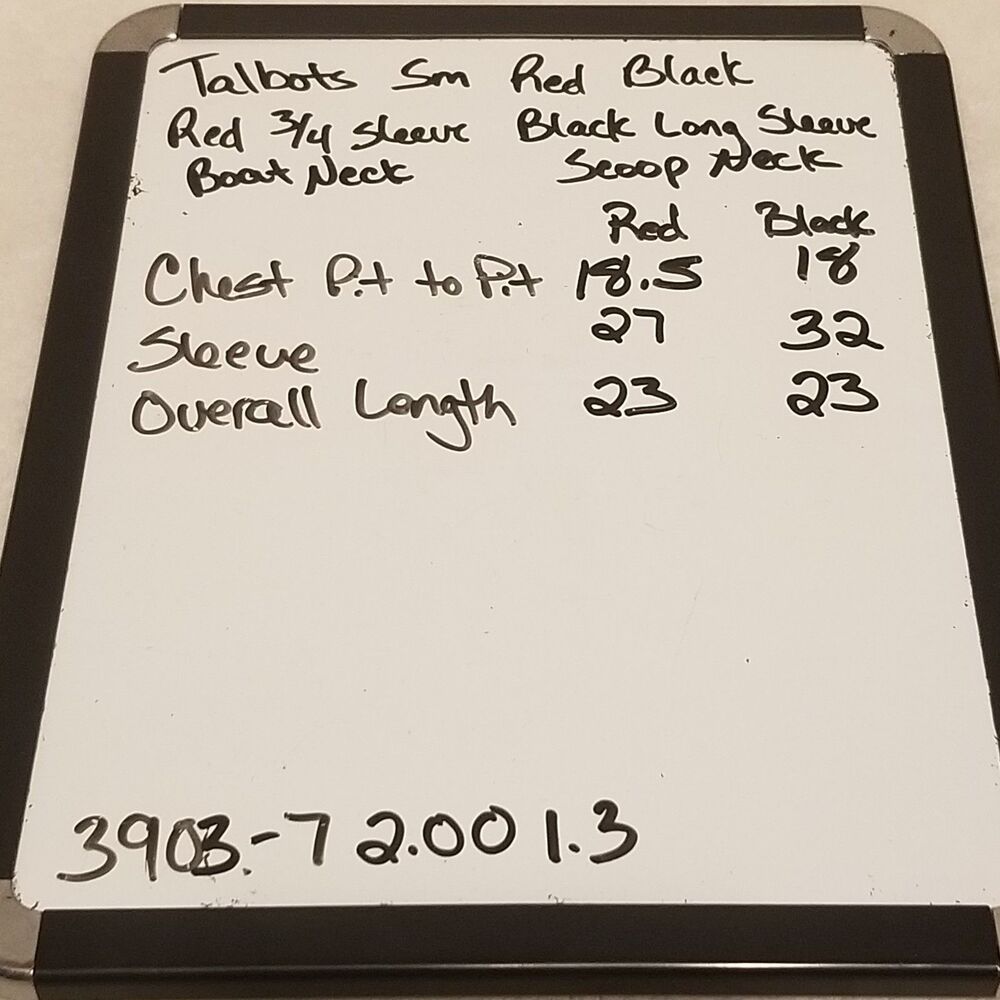 Talbots Sm Red Black
Red 3/4 Sleeve Black Long Sleeve
Boat Neck Scoop Neck
Red Black
Chest Pit to Pit 18.5 18
Sleeve 27 32
Overall Length 23 23
3903.-7 2.00 1.3